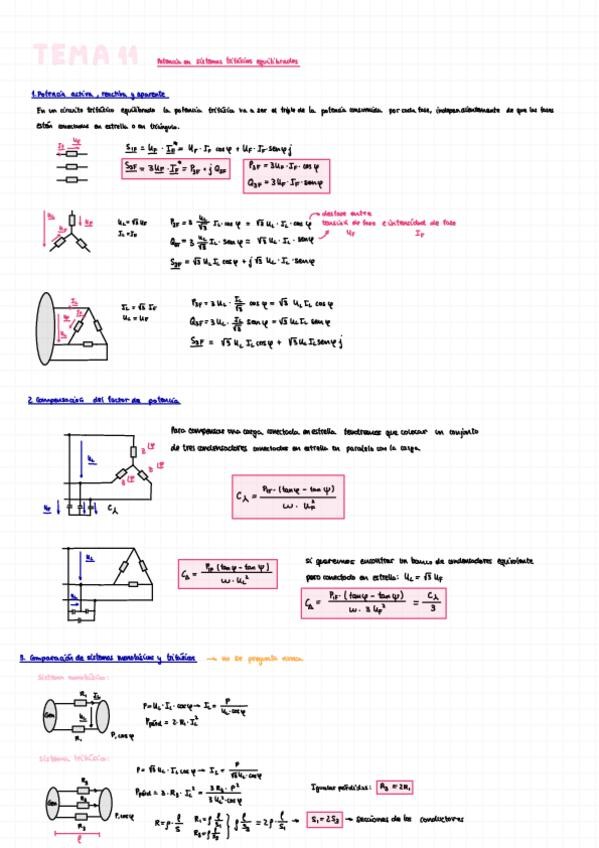 TEMA 11
Potencia en sistemas trifásicos equilibrados
1. Potencia activa, reactiva y aparente
En un circuito trifásico equilibrado la potencia trifásica va a ser el triple de la potencia consumida por cada fase, independientemente de que las fases
estén conectadas en estrella o en triángulo.
S1F = UF · IF* = UF · IF cosφ + UF · IF senφj
S3F = 3UF · IF* = P3F + j Q3F
P3F = 3UF · IF · cosφ
Q3F = 3UF · IF · senφ
UL = √3 UF
IL = IF
P3F = 3 UL/√3 IL · cosφ = √3 UL · IL · cosφ
Q3F = 3 UL/√3 IL · senφ = √3 UL · IL · senφ
S3F = √3 UL IL cosφ + j √3 UL · IL · senφ
desfase entre
tensión de fase e intensidad de fase
UF IF
IL = √3 IF
UL = UF
P3F = 3UL · IL/√3 cosφ = √3 UL IL cosφ
Q3F = 3UL · IL/√3 senφ = √3 UL IL senφ
S3F = √3 UL IL cosφ + √3 UL IL senφ j
2. Compensación del factor de potencia
Para compensar una carga conectada en estrella tendremos que colocar un conjunto
de tres condensadores conectados en estrella en paralelo con la carga.
UL
UF
Cλ
Cλ = P1F · (tanφ - tanφ') / ω · UF²
UL
CΔ = P1F (tanφ - tanφ') / ω · UL²
Si queremos encontrar un banco de condensadores equivalente
pero conectado en estrella: UL = √3 UF
CΔ = P1F · (tanφ - tanφ') / ω · 3 UF² = Cλ/3
3. Comparación de sistemas monofásicos y trifásicos → no se pregunta nunca
Sistema monofásico:
Gen R1 IL UL R1 P, cosφ
P = UL · IL · cosφ → IL = P / UL · cosφ
Ppérd = 2 · R1 · IL²
Sistema trifásico:
Gen R3 R3 R3 P, cosφ
ℓ
P = √3 UL · IL cosφ → IL = P / √3 UL · cosφ
Ppérd = 3 · R3 · IL² = 3 R3 · P² / 3 UL² · cos²φ
Igualar pérdidas: R3 = 2R1
R = ρ · ℓ/S
R1 = ρ ℓ/S1
R3 = ρ ℓ/S3
ρ ℓ/S3 = 2ρ · ℓ/S1 → S1 = 2S3 → secciones de los conductores